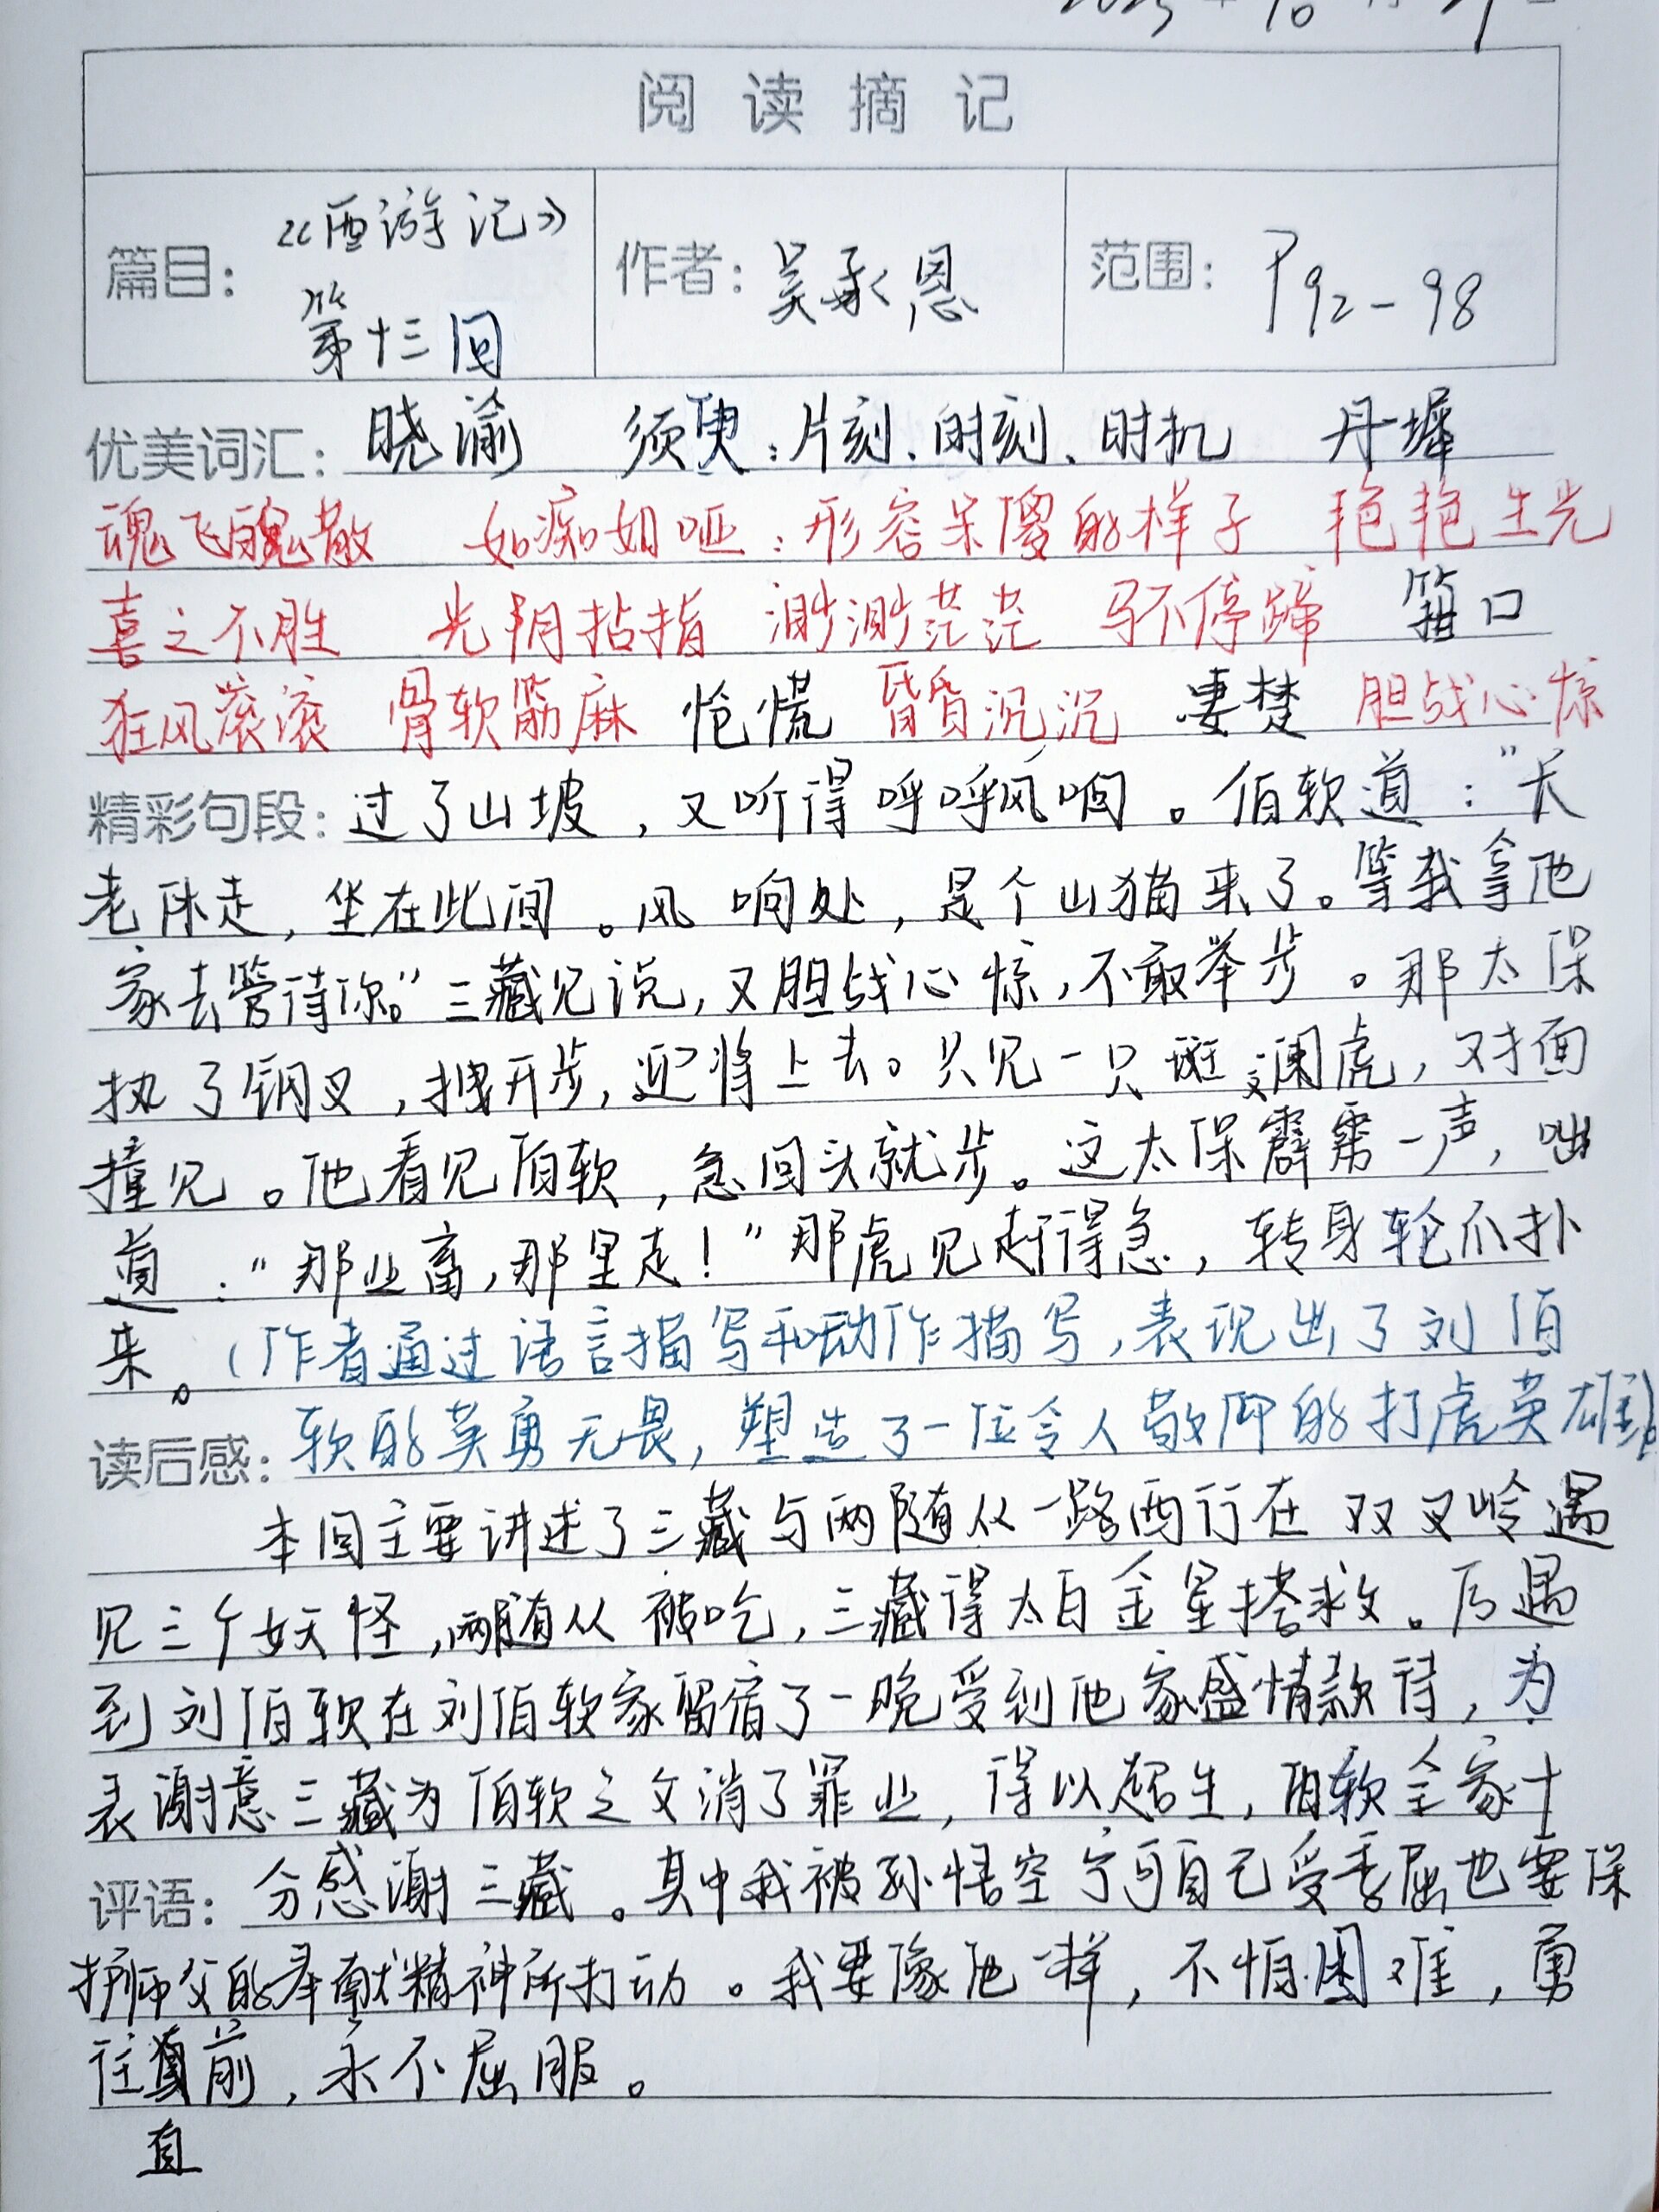 阅读摘记
篇目：《西游记》第十三回 作者：吴承恩 范围：P92-98
优美词汇：晓谕 须臾：片刻、时刻、时机 丹墀
魂飞魄散 如痴如哑：形容呆傻的样子 艳艳生光
喜之不胜 光阴拈指 渺渺茫茫 马不停蹄 箝口
狂风滚滚 骨软筋麻 怆慌 昏昏沉沉 凄楚 胆战心惊
精彩句段：过了山坡，又听得呼呼风响。伯软道：“长
老休走，坐在此间。风响处，是个山猫来了。等我拿他
家去管待你。”三藏见说，又胆战心惊，不敢举步。那太保
执了钢叉，拽开步，迎将上去。只见一只斑斓虎，对面
撞见。他看见伯软，急回头就步。这太保霹雳一声，咄
道：“那业畜，那里走！”那虎见赶得急，转身轮爪扑
来。（作者通过语言描写和动作描写，表现出了刘伯
读后感：软的英勇无畏，塑造了一位令人敬仰的打虎英雄）。
本回主要讲述了三藏与两随从一路西行在双叉岭遇
见三个妖怪，两随从被吃，三藏得太白金星搭救。后遇
到刘伯软在刘伯软家留宿了一晚受到他家盛情款待，为
表谢意三藏为伯软之父消了罪业，得以超生，伯软全家十
评语：分感谢三藏。其中我被孙悟空宁可自己受委屈也要保
护师父的奉献精神所打动。我要像他一样，不怕困难，勇
往直前，永不屈服。
直